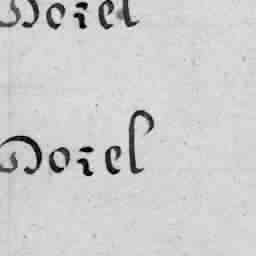 Noiel
Noiel